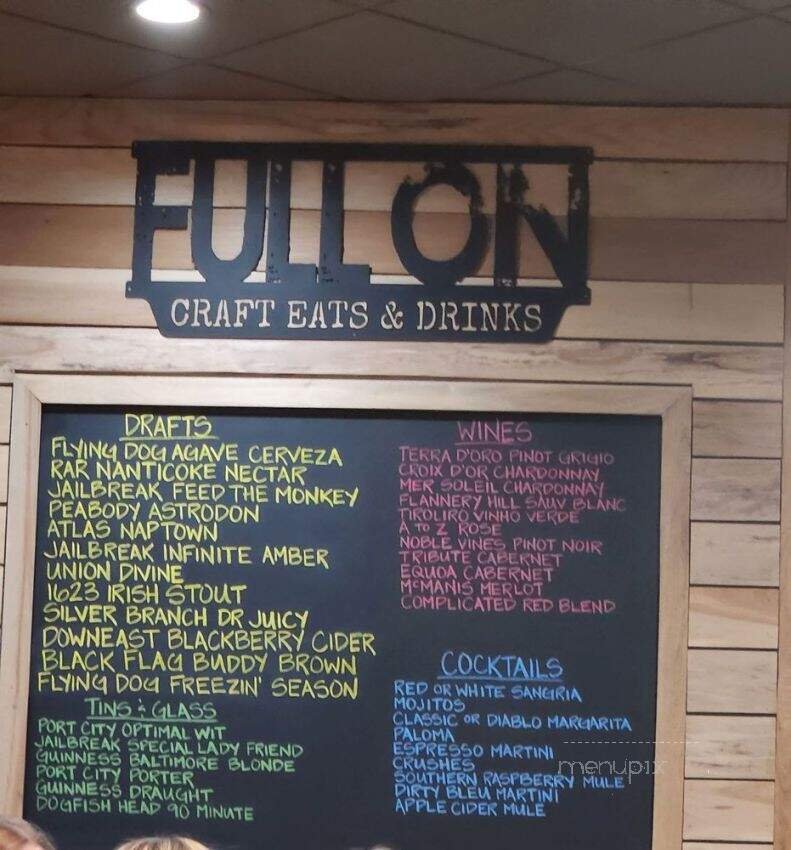 FULL ON
CRAFT EATS & DRINKS
DRAFTS
FLYING DOG AGAVE CERVEZA
RAR NANTICOKE NECTAR
JAILBREAK FEED THE MONKEY
PEABODY ASTRODON
ATLAS NAPTOWN
JAILBREAK INFINITE AMBER
UNION DIVINE
1623 IRISH STOUT
SILVER BRANCH DR JUICY
DOWNEAST BLACKBERRY CIDER
BLACK FLAG BUDDY BROWN
FLYING DOG FREEZIN' SEASON
TINS & GLASS
PORT CITY OPTIMAL WIT
JAILBREAK SPECIAL LADY FRIEND
GUINNESS BALTIMORE BLONDE
PORT CITY PORTER
GUINNESS DRAUGHT
DOGFISH HEAD 90 MINUTE
WINES
TERRA D'ORO PINOT GRIGIO
CROIX D'OR CHARDONNAY
MER SOLEIL CHARDONNAY
FLANNERY HILL SAUV BLANC
TIROLIRO VINHO VERDE
A TO Z ROSE
NOBLE VINES PINOT NOIR
TRIBUTE CABERNET
EQUOA CABERNET
MCMANIS MERLOT
COMPLICATED RED BLEND
COCKTAILS
RED OR WHITE SANGRIA
MOJITOS
CLASSIC OR DIABLO MARGARITA
PALOMA
ESPRESSO MARTINI
CRUSHES
SOUTHERN RASPBERRY MULE
DIRTY BLEU MARTINI
APPLE CIDER MULE
menupix